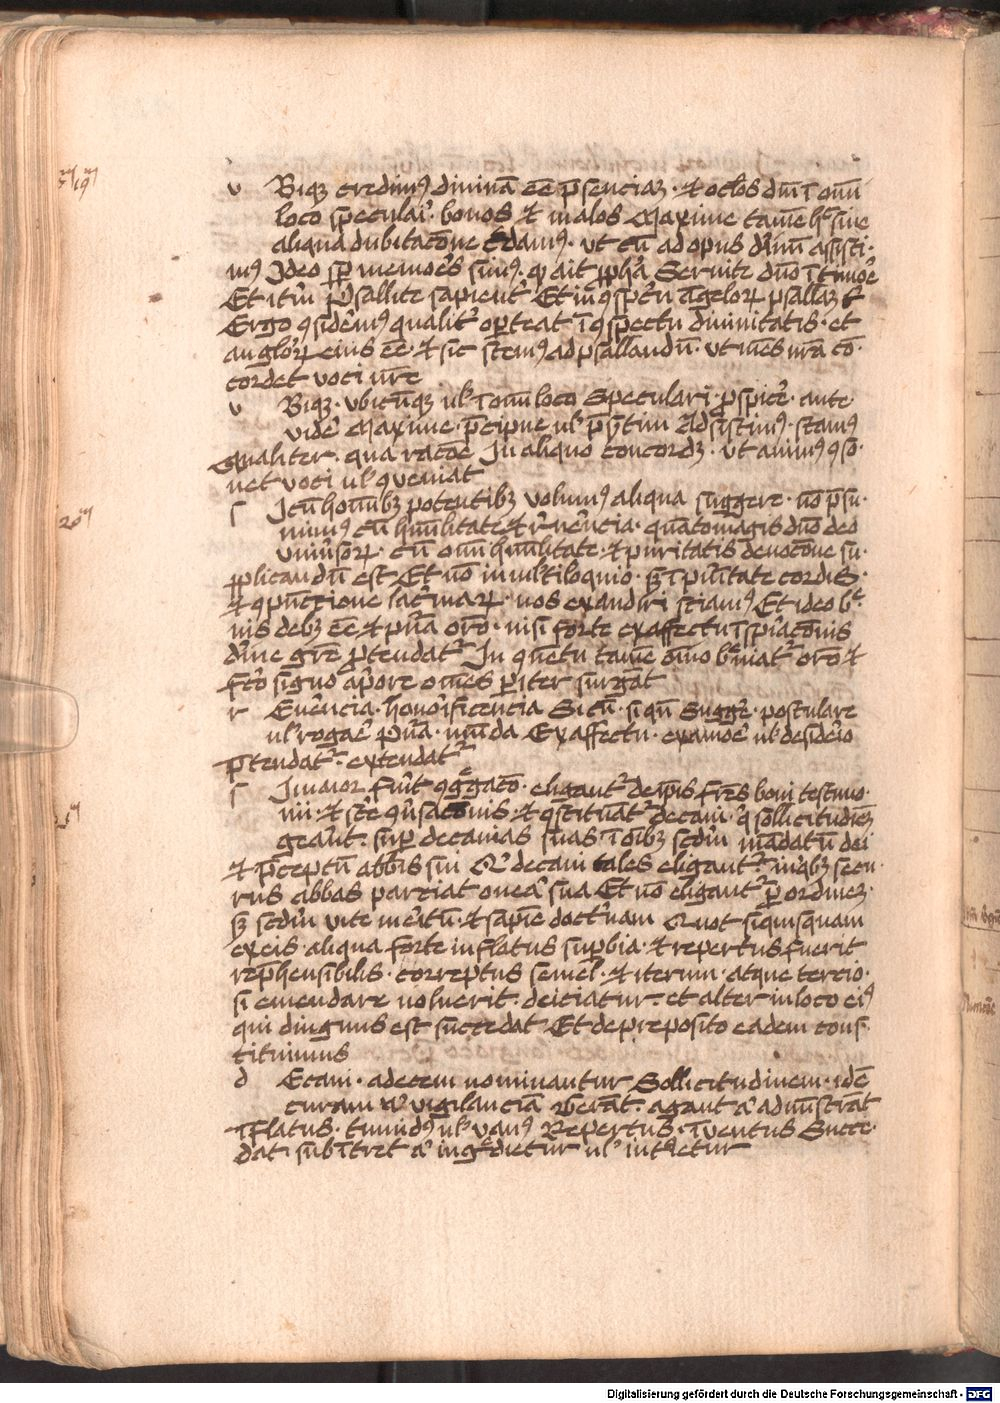 v Biqꝫ credimꝰ diuinā eē p̄senciaꝫ · et oculos dn̄i ī omni
loco speculari · bonos et malos Maxime tamē hͦ sine
aliqua dubitacōne credamꝰ · ut cū ad opus diuinū assisti·
mꝰ Ideo semper memores simꝰ · qd ait ꝓpheta Seruite dn̄o ī timore
Et iterū Psallite sapienter Et in ꝯspectu āgeloꝝ psallaꝫ tibi
Ergo ꝯsideremꝰ qualiter oporteat ī ꝯspectu diuinitatis · et
angloꝝ eius eē · et sic stemꝰ ad psallendū · ut mēs nr̄a cō·
cordet voci nr̄e
v Biqꝫ · vbicūqꝫ ul ī omni loco Speculari · ꝓspicere · ante
videre Maxime · p̄cipue ul p̄sertim Adsistimꝰ · stamꝰ
Qualiter · qua racōe In aliquo concordꝫ · ut animꝰ ꝯso·
net voci ul ꝯueniat
ſ I cū hominibꝫ potentibꝫ volumꝰ aliqua suggere · nō p̄su·
mimꝰ cū humilitate et reuerencia · quātomagis dn̄o deo
vniuersoꝝ · cū omni humilitate · et puritatis deuocōne su·
pplicandū est Et nō in multiloquio · sꝫ ī puritate cordis ·
et ꝯpūctione lacrimaꝝ · nos exaudiri sciamꝰ Et ideo bre·
uis debꝫ eē et pura orō · nisi forte ex affectu īspiracōnis
diuine gr̄e ꝓtendatur In ꝯuētu tamē omnino breuiatur orō et
facto signo a priore om̄es pariter surgāt
r Euerēcia · honorificencia Sicū · si qn̄ Suggere · postulare
ul rogare Pura · mūda Ex affectu · ex amore ul desiderio
Ptendatur · extendatur
ſ I maior fuerit ꝯgregacō · eligantur de ipsis fr̄es boni testimo·
nii · et scē ꝯuersacōnis · et ꝯstituantur decani · qui sollicitudineꝫ
gerant · super decanias suas ī omībꝫ secdm mādatū dei
et p̄ceptū abb̄is sui Qui decani tales eligantur · in qbꝫ secu·
rus abbas parciat onera sua Et nō eligantur per ordineꝫ·
sꝫ secdm vite meritū · et sapiēe doctrinam Quot si quisquam
ex eis · aliqua forte inflatus superbia · et repertus fuerit
rep̄hensibilis · correptus semel · et iterum · atque tercio·
si emendare noluerit · deiciatur · et alter in loco eiꝰ
qui dingnus est succedat Et de preposito eadem cons·
tituimus
d Ecani · a decem nominantur Sollicitudinem · idē
curam vel vigilanciā Gerāt · agant vel administrāt
īflatus · tumidꝰ ul vanꝰ Repertus · īuentus Succe·
dat subītret vel ingrediatur ul
19m
20m
Digitalisierung gefördert durch die Deutsche Forschungsgemeinschaft - DFG